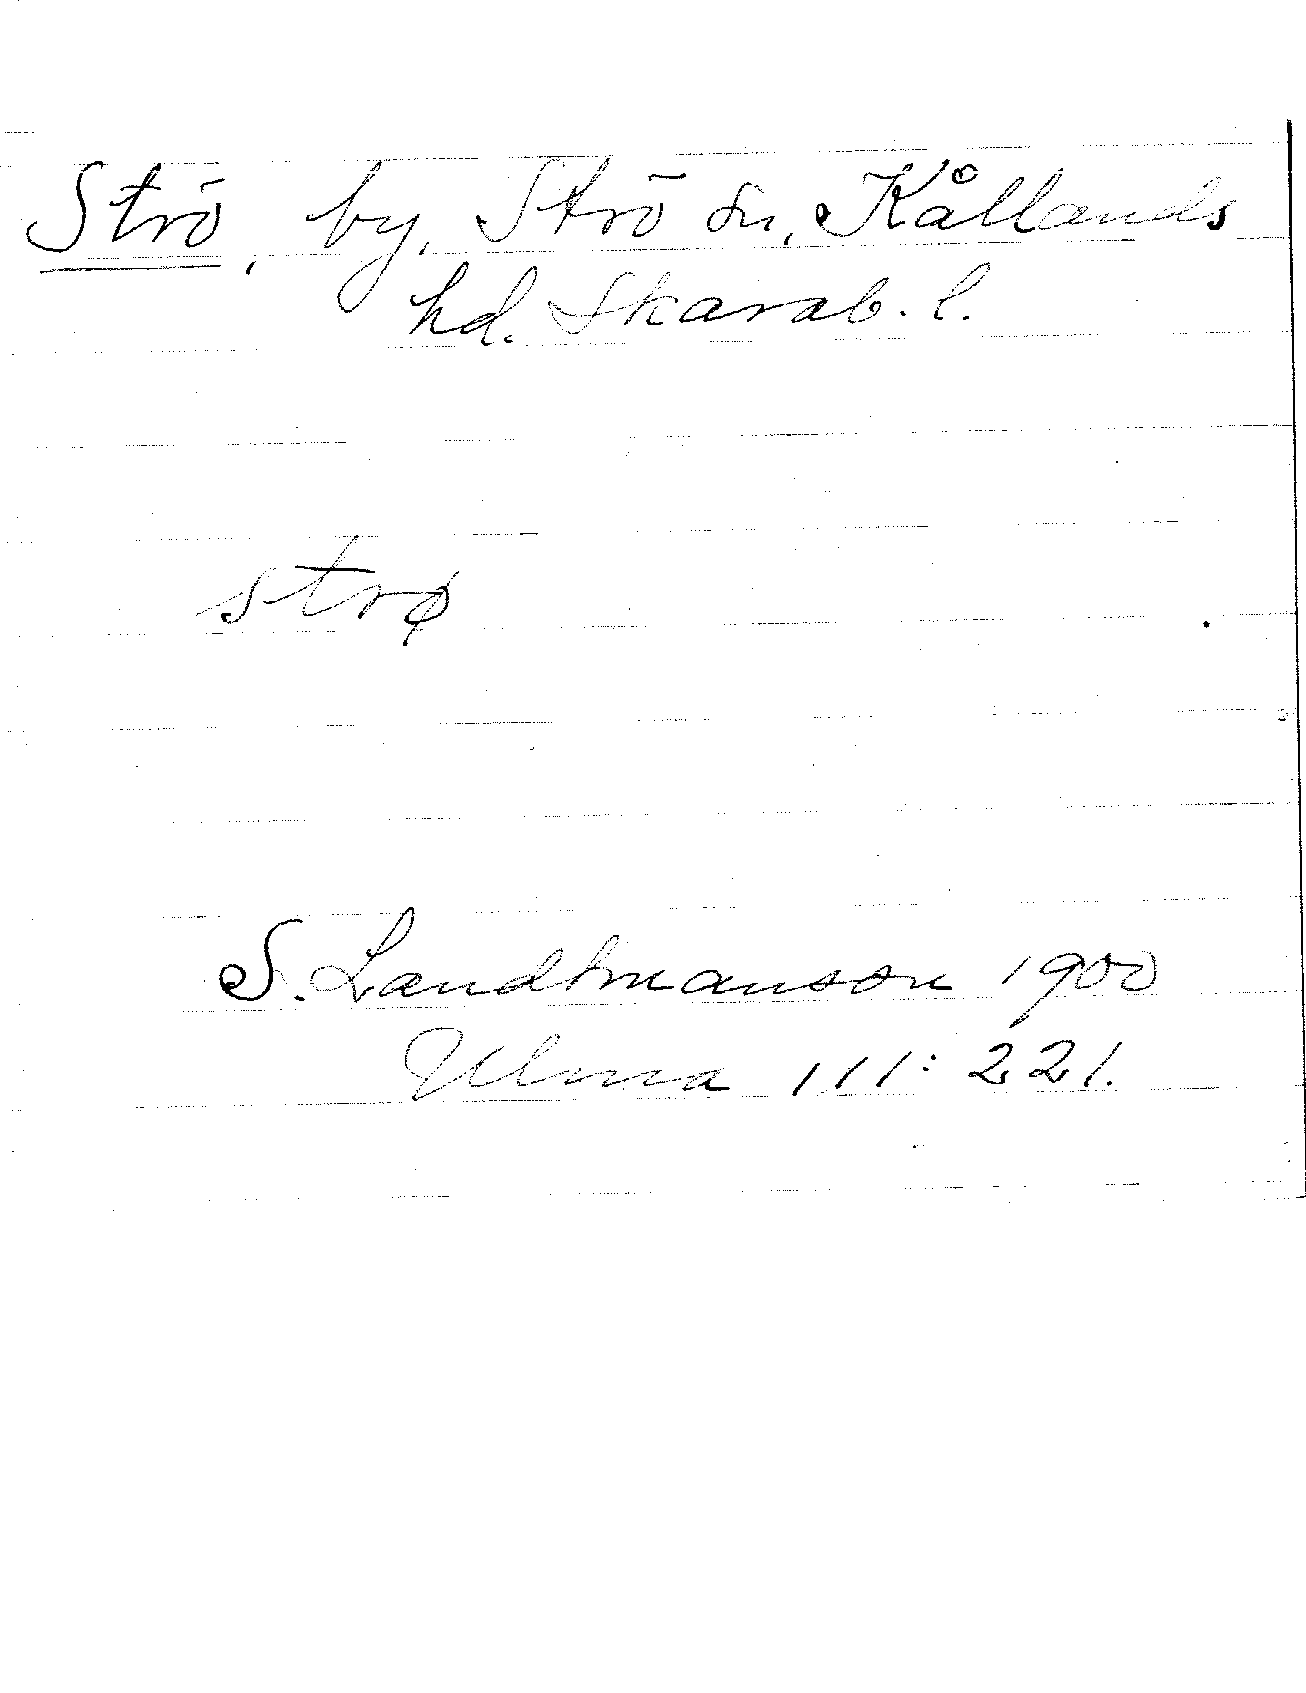 Strö, by, Strö sn, Kållands
hd. Skarab. l.
strø
S. Landtmanson 1900
Ulma 111:221.